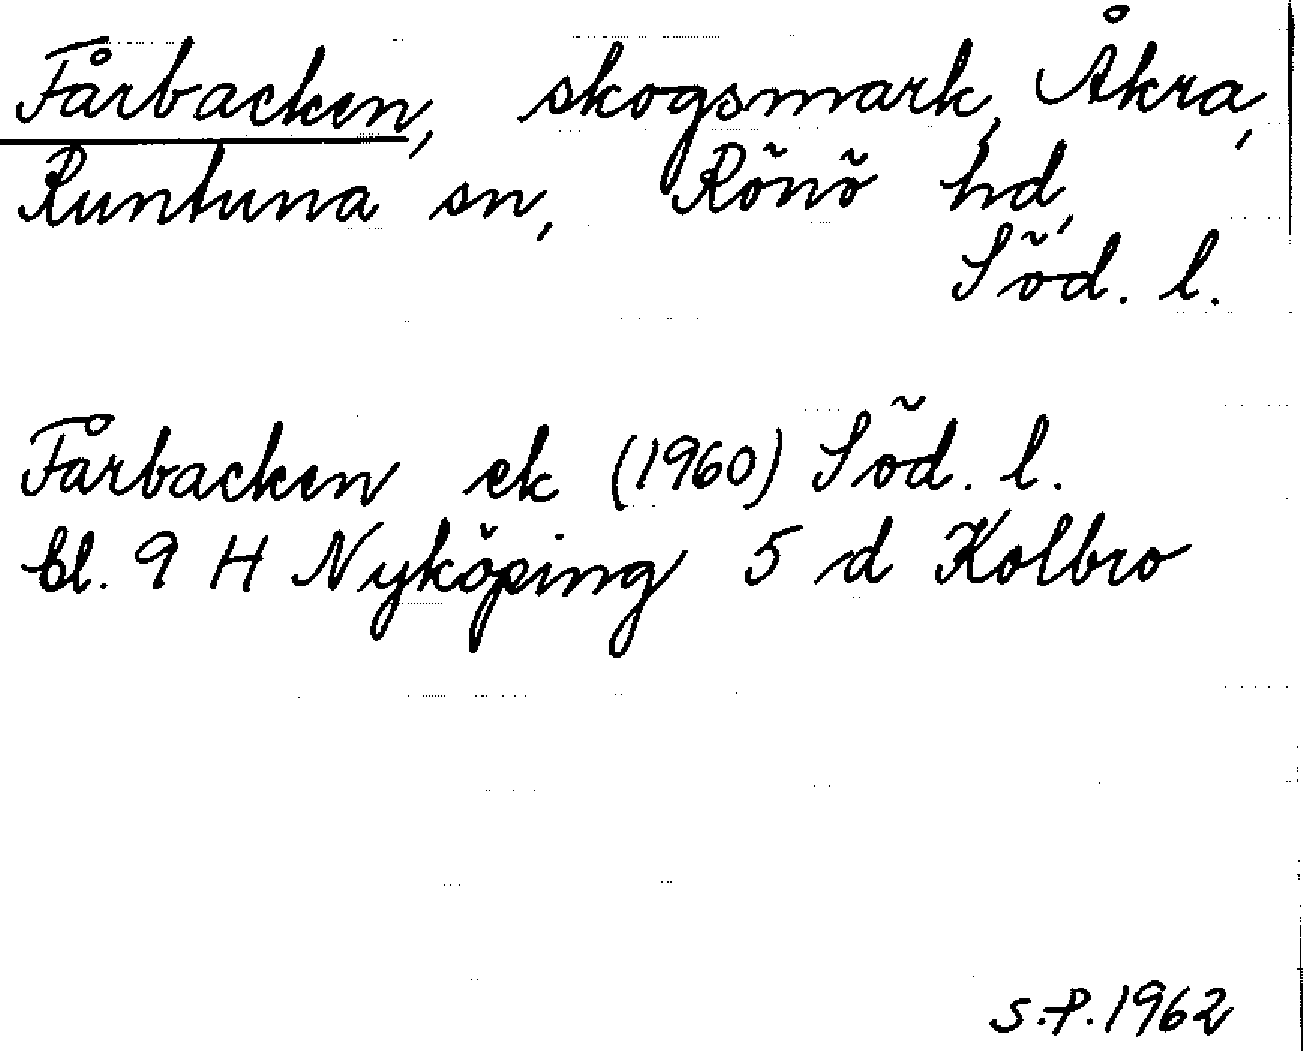 Fårbacken, skogsmark, Åkra,
Runtuna sn, Rönö hd,
Söd. l.
Fårbacken ek (1960) Söd. l.
bl. 9 H Nyköping 5 d Kolbro
S.P. 1962